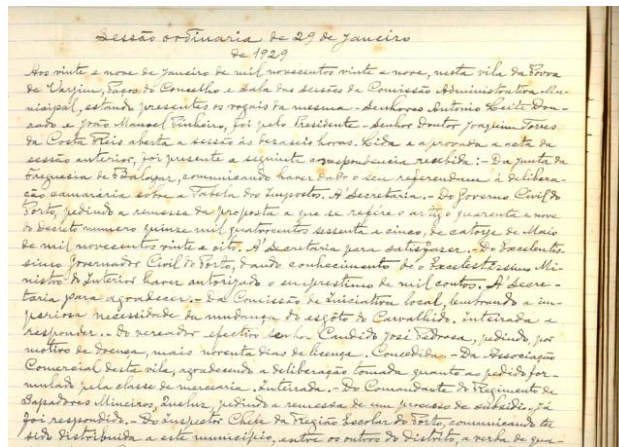 Sessão ordinaria de 29 de Janeiro
de 1929
Aos vinte e nove de Janeiro de mil novecentos vinte e nove, nesta vila da Povoa
de Varzim, Paços do Concelho e Sala das sessões da Comissão Administrativa Mu-
nicipal, estando presentes os vogais da mesma - Senhores Antonio Leite Dou-
rado e João Manoel Pinheiro, foi pelo Presidente - Senhor Doutor Joaquim Torres
da Costa Reis aberta a sessão ás dezaseis horas. Lida e aprovada a acta da
sessão anterior, foi presente a seguinte correspondencia recebida: - Da Junta da
Freguesia de Balazar, comunicando haver dado o seu referendum á delibera-
ção camararia sobre a Tabela dos Impostos. A' Secretaria. - Do Governo Civil do
Porto, pedindo a remessa da proposta a que se refere o artigo quarenta e nove
do decreto numero quinze mil quatrocentos sessenta e cinco, de catorze de Maio
de mil novecentos vinte e oito. A' Secretaria para satisfazer. - Do Excelentis-
simo Governador Civil do Porto, dando conhecimento de o Excelestissimo Mi-
nistro do Interior haver autorizado o emprestimo de mil contos. A' Secre-
taria para agradecer. - Da Comissão de Iniciativa local, lembrando a im-
periosa necessidade da mudança do esgôto do Carvalhido. Inteirada e
responder. - Do vereador efectivo senhor Candido José Pedrosa, pedindo, por
motivo de doença, mais noventa dias de licença. Concedida. - Da Associação
Comercial desta vila, agradecendo a deliberação tomada quanto ao pedido for-
mulado pela classe de mercearia. Inteirada. - Do Comandante do Regimento de
Sapadores Mineiros, Queluz, pedindo a remessa de um processo de subsidio. Já
foi respondido. - Do Inspector Chefe da Região Escolar do Porto, comunicando ter
sido distribuida a este municipio, entre os outros do Distrito, a verba de qua-